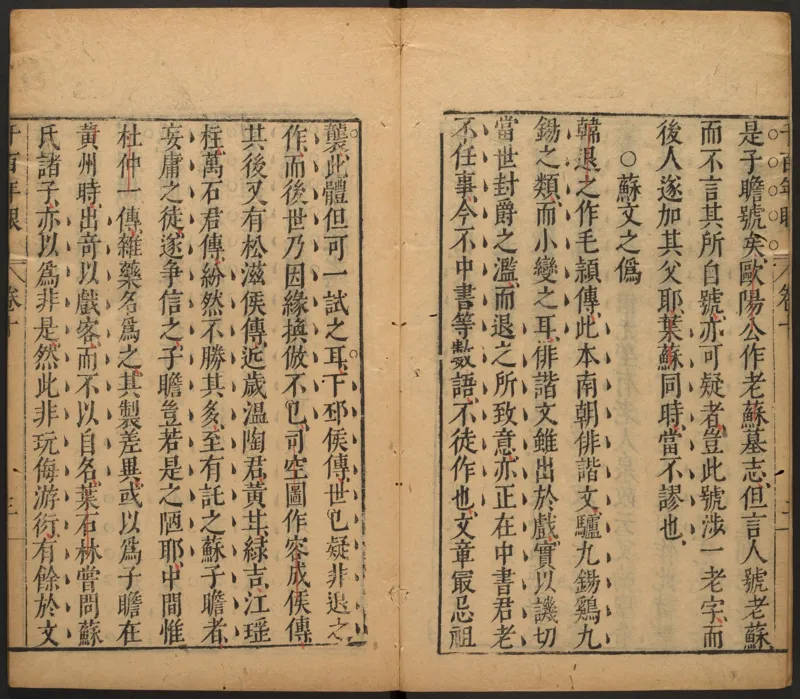 是子瞻號矣歐陽公作老蘇墓志但言人號老蘇
而不言其所自號亦可疑者豈此號涉一老字而
後人遂加其父耶葉蘇同時當不謬也
○蘇文之僞
韓退之作毛頴傳此本南朝俳諧文驢九錫鷄九
錫之類而小變之耳俳諧文雖出於戲實以譏切
當世封爵之濫而退之所致意亦正在中書君老
不任事今不中書等數語不徒作也文章冣忌祖
襲此體但可一試之耳下邳侯傳世已疑非退之
作而後世乃因緣摸倣不已司空圖作容成侯傳
其後又有松滋侯傳近歲溫陶君黃甘綠吉江瑶
柱萬石君傳紛然不勝其多至有託之蘇子瞻者
妄庸之徒遂爭信之子瞻豈若是之陋耶中間惟
杜仲一傳雜藥名爲之其製差異或以爲子瞻在
黃州時出奇以戲客而不以自名葉石林嘗問蘇
氏諸子亦以爲非是然此非玩侮游衍有餘於文
千百年眼 卷十